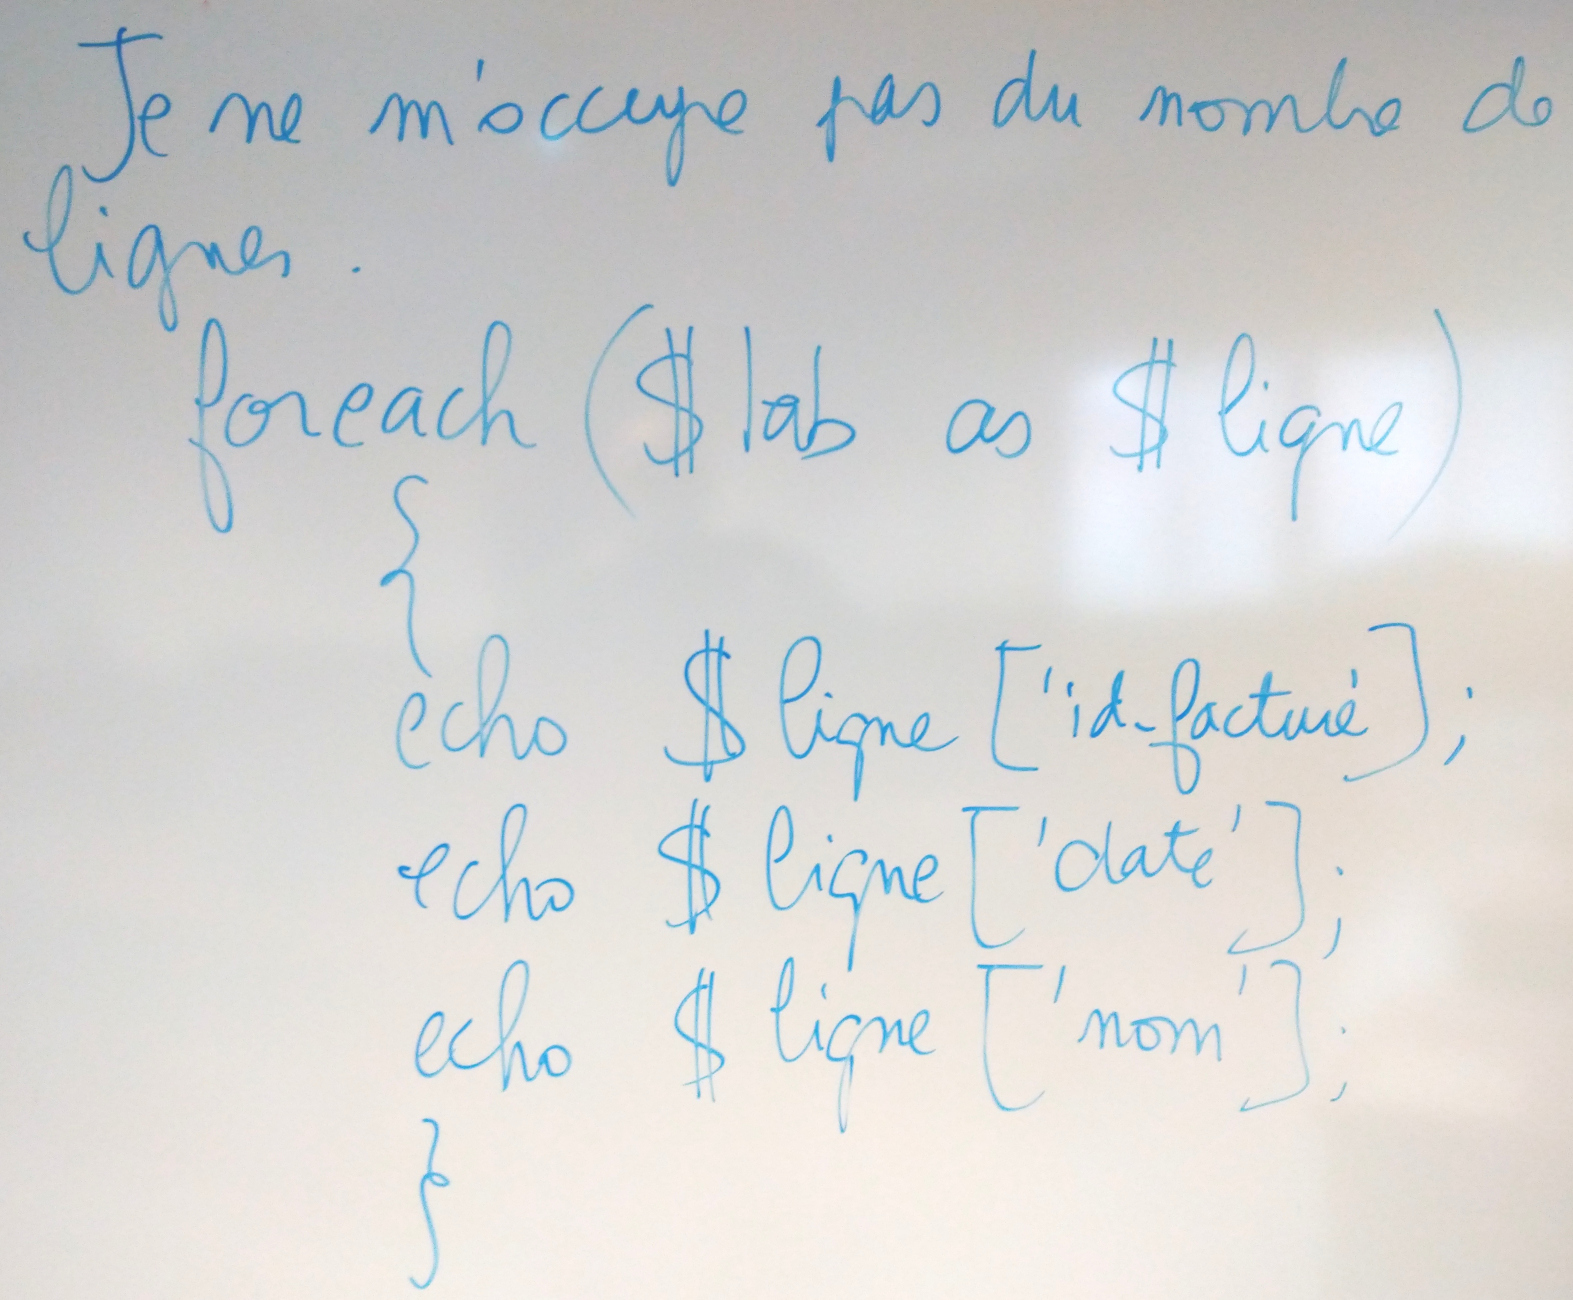 Je ne m'occupe pas du nombre de
lignes.
foreach ($tab as $ligne)
{
echo $ligne ['id_facture'];
echo $ligne ['date'];
echo $ligne ['nom'];
}